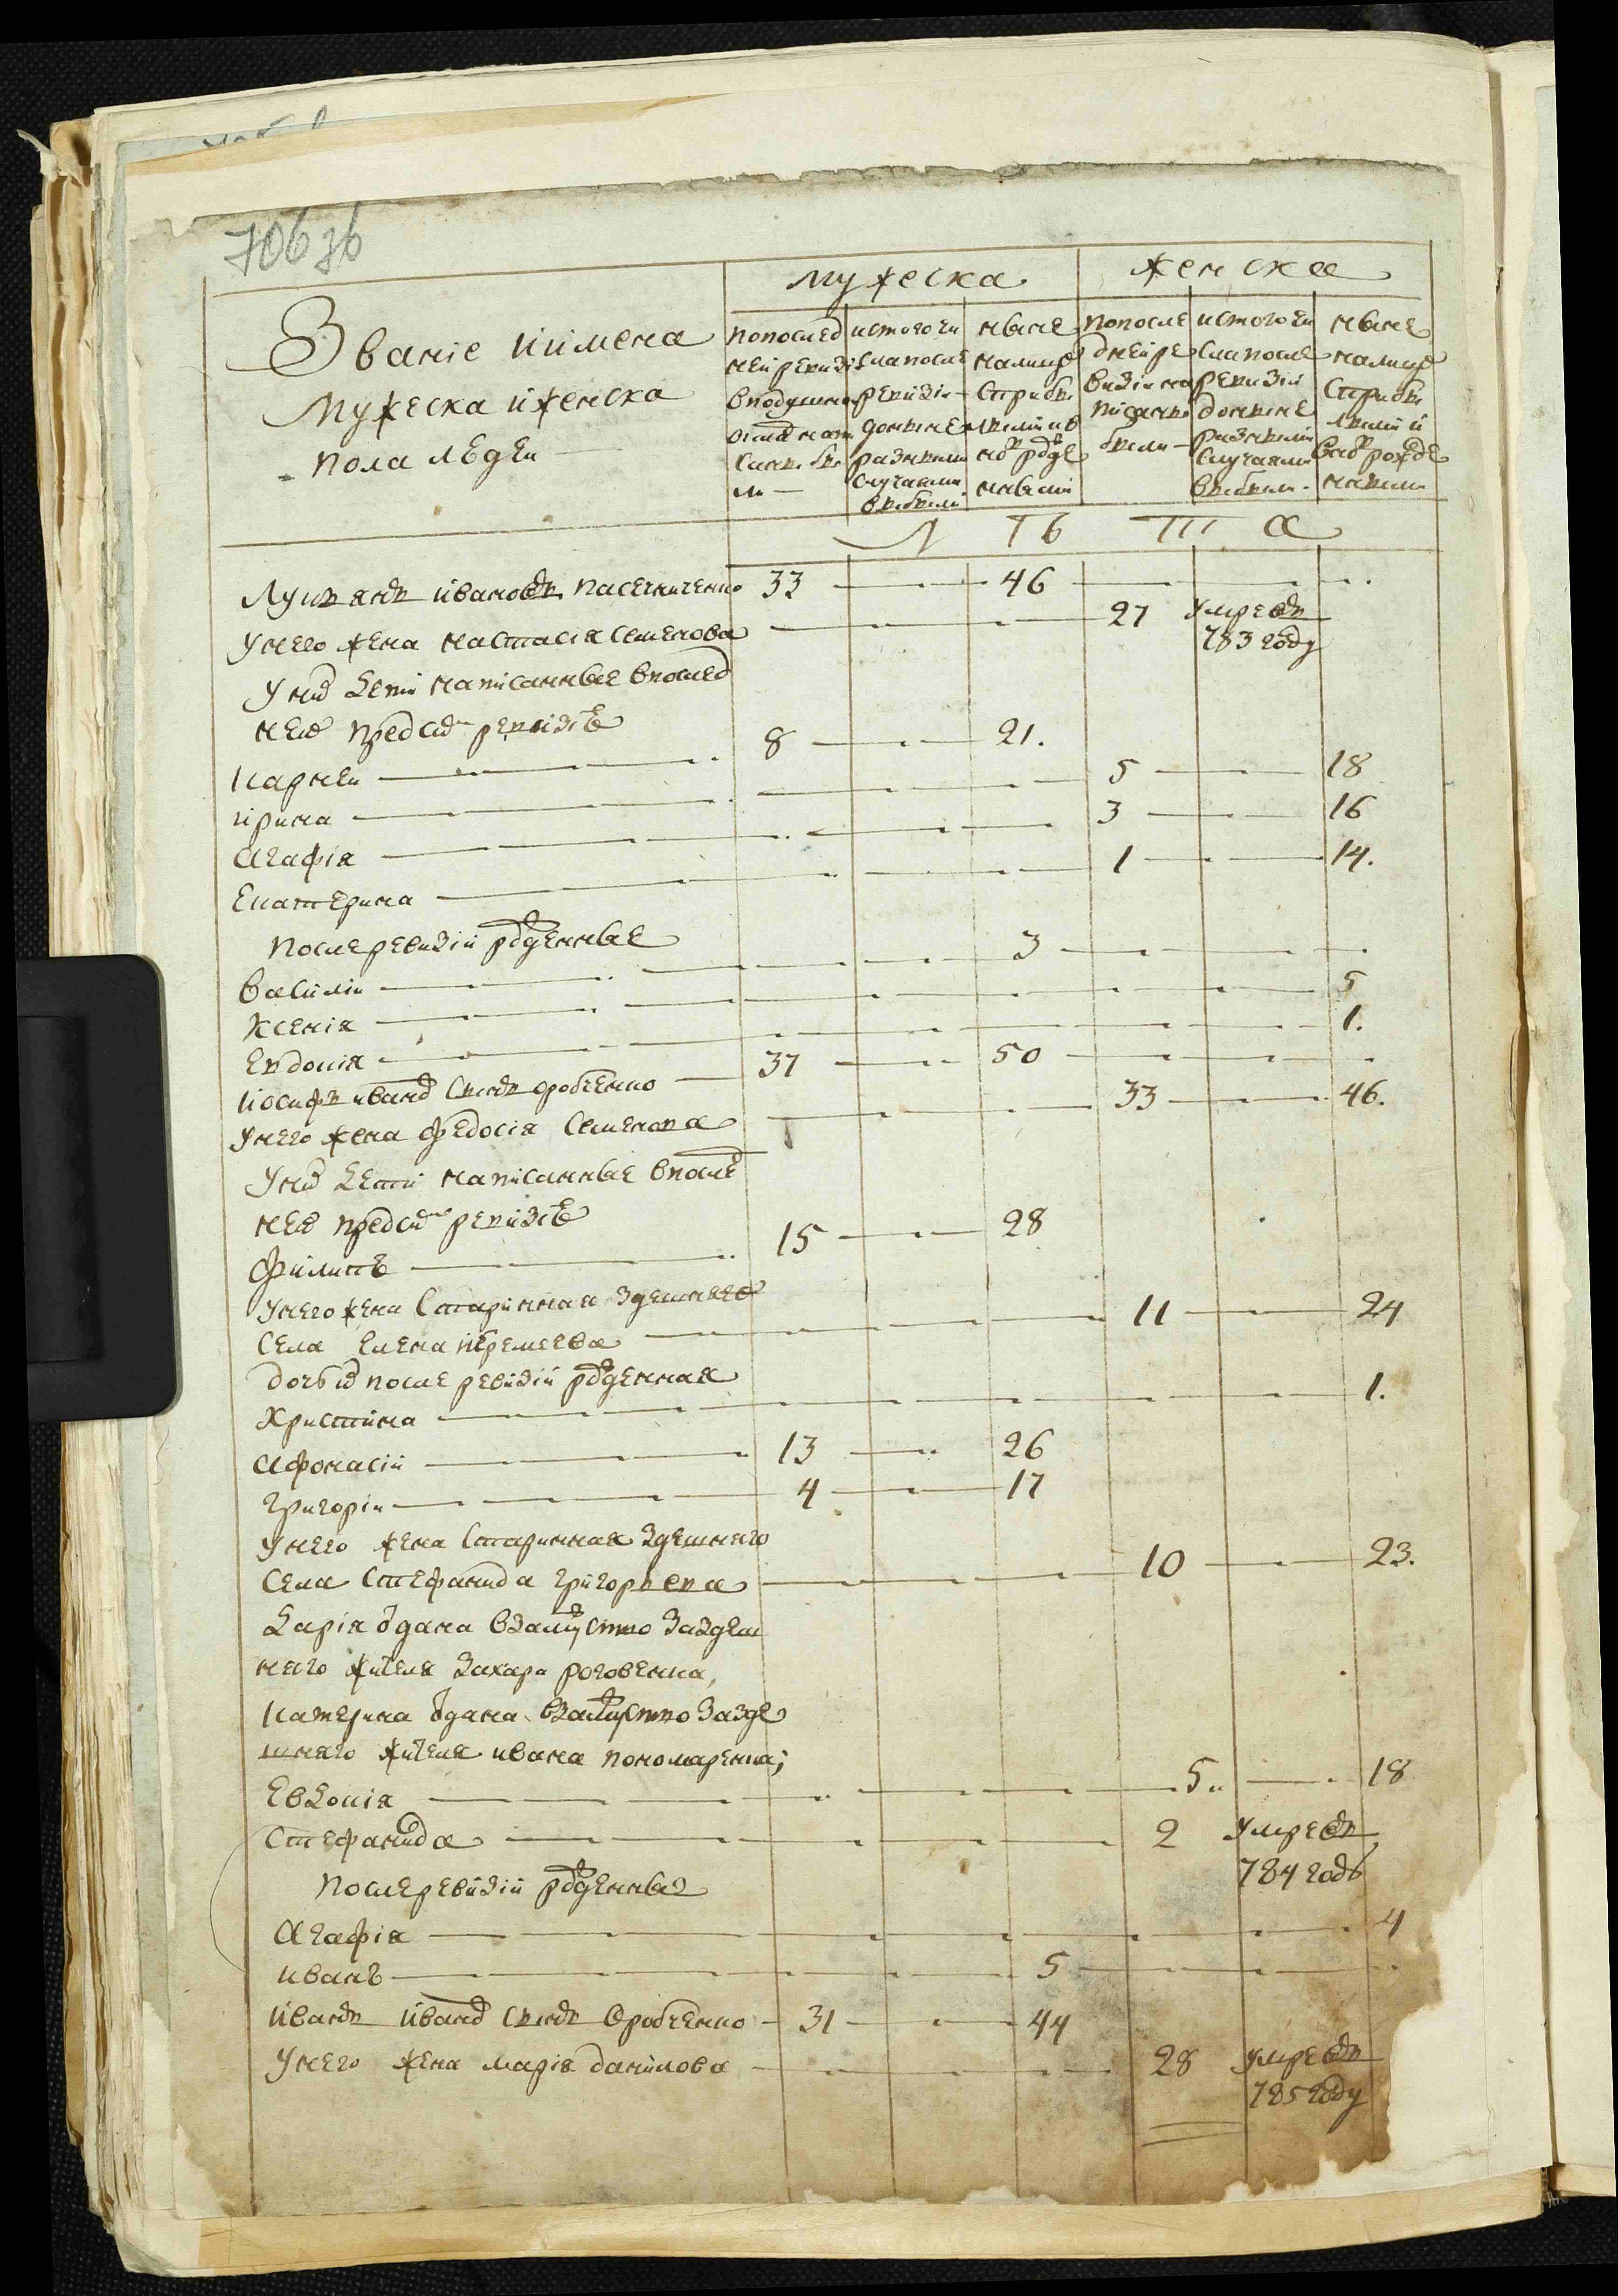 706 зв
Мужеска
Женска
Званіе и имена
Мужеска и женска
пола людеи
попослед
ней ревизіи
вподушном
окладе напи
саны бы
ли
ис того чи
сла после
ревизіи
доныне
разными
случаями
выбыли
ныне
налицо
с прибы
лыми и в
новь рожде
ными
попосле
дней ре
визіи на
писаны
были
ис того чи
сла после
ревизіи
доныне
разными
случаями
выбыли
ныне
налицо
с прибы
лыми и
вновь рожде
ными
Л Т Ь Т А
Лукьянъ Ивановъ Пасечниченко 33 46
У него жена Настасія Семенова 27 умре въ
783 году
У них дети написанные в послед
нею пред сим ревизіе
Карнеи 8 21.
Ирина 5 18
Агафія 3 16
Екатерина 1 14.
После ревизіи рожденные
Василіи 3
Ксенія 5
Евдокія 1.
Иосифъ Иванов сынъ Оробченко 37 50
У него жена Федосія Семенова 33 46.
У них дети написанные в послед
нею пред сим ревизіе
Филипъ 15 28
У него жена старинная здешнего
села Елена Иеремеева 11 24
Дочь их после ревизіи рожденная
Христина 1.
Афонасіи 13 26
Григоріи 4 17
У него жена старинная здешняго
села Стефанида Григорьева 10 23.
Дарія отдана в замужство за здеш
няго жителя Захара Роговенка,
Катерина отдана в замужство за зде
шняго жителя Ивана Пономаренка;
Евдокія 5 18
Стефанида 2 умре въ
784 годѣ
После ревизіи рожденные
Агафія 4
Иванъ 5
Иванъ Иванов сынъ Оробченко 31 44
У него жена Марія Данилова 28 умре въ
785 году